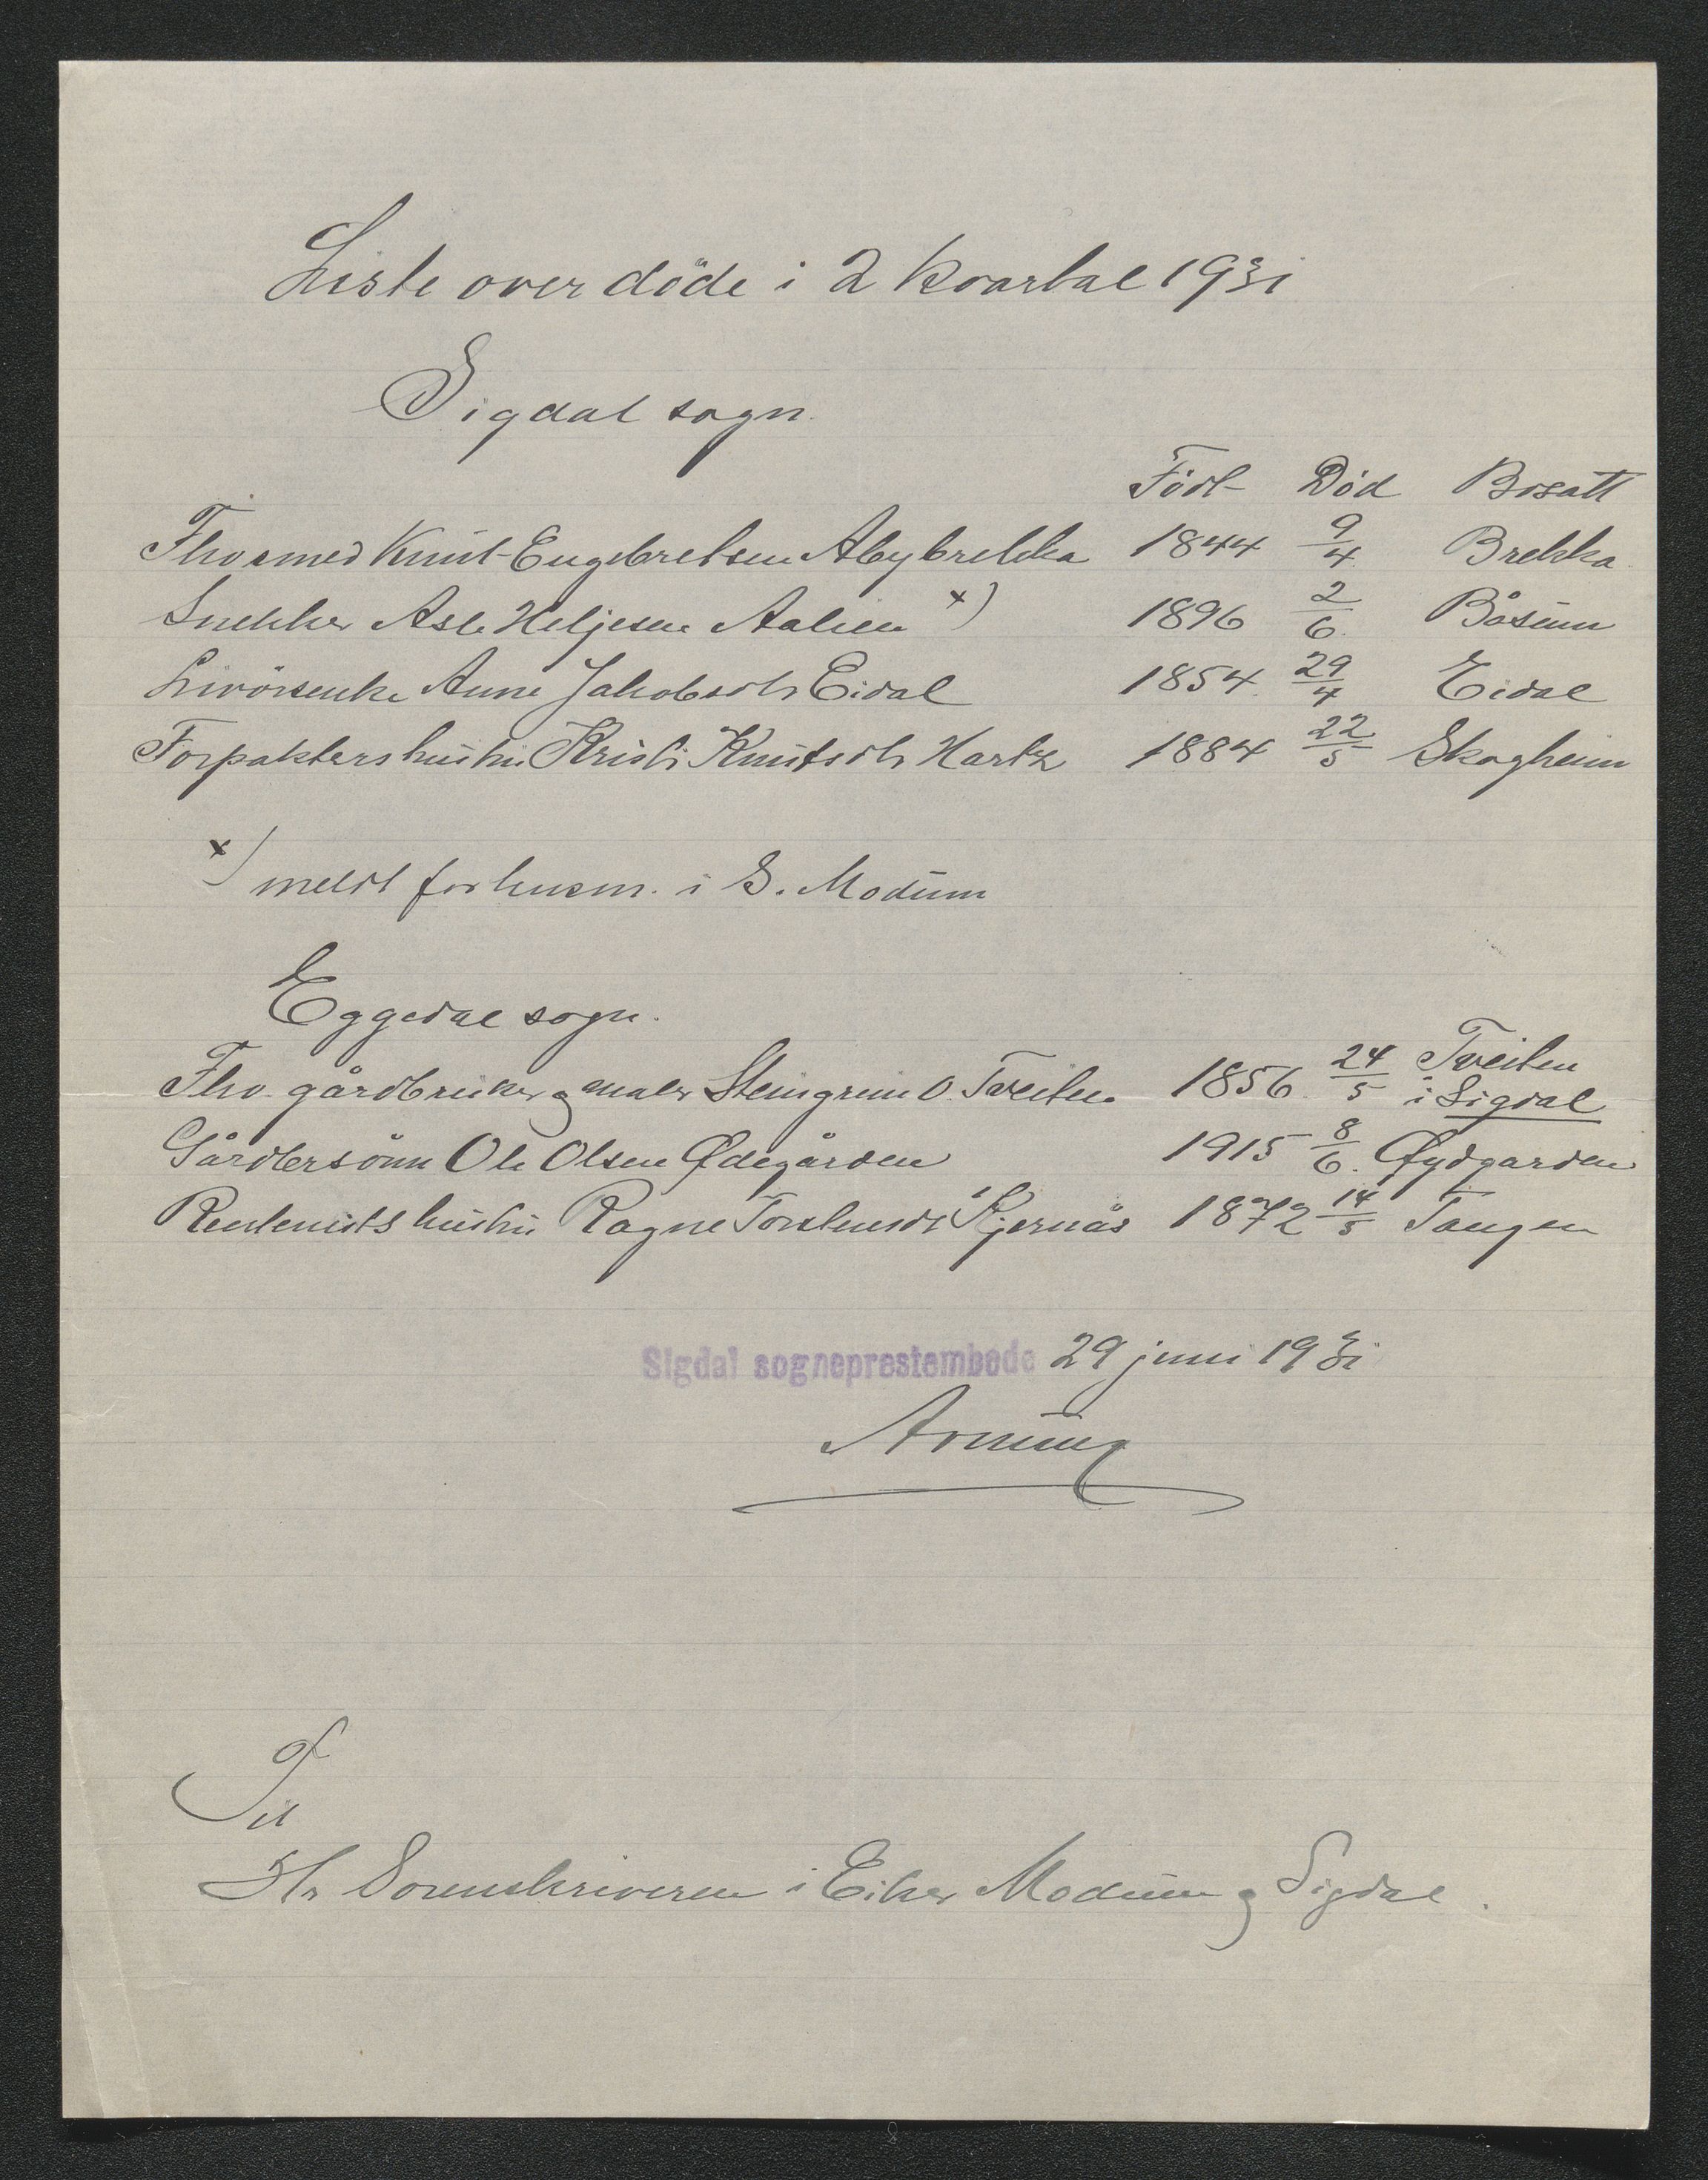 Liste over döde i 2 kvartal 1931
Sigdal sogn.
Födt Död Bosatt
Fhv smed Knut Engebretsen Åbybrekka 1844 9/4 Brekka
Snekker Asle Heljesen Aalien x) 1896 2/6 Båsum
Livörsenke Anne Jakobsdtr Eidal 1854 29/4 Eidal
Forpaktershustru Kristi Knutsdtr Hartz 1884 22/5 Skogheim
x) meldt lensm. i S. Modum
Eggedal sogn.
Fhv. gårdbruker og maler Steingrim O. Tveiten 1856 24/5 Tveiten
i Sigdal
Gårdbrsönn Ole Olsen Ødegården 1915 8/6 Øydgarden
Rentenists hustru Ragne Torstensdt Kjernås 1872 14/5 Tangen
Sigdal sogneprestembede 29 juni 1931
Til
Hr Sorenskriveren i Eiker Modum og Sigdal.